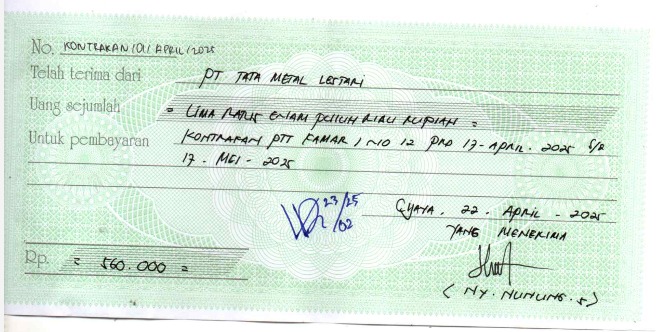 No. KONTRAKAN/01/APRIL/2025
Telah terima dari PT TATA METAL LESTARI
Uang sejumlah = LIMA RATUS ENAM PULUH RIBU RUPIAH =
Untuk pembayaran KONTRAKAN PTT KAMAR / NO 12 PRD 17-APRIL. 2025 S/D
17. MEI - 2025
23/25
/02
22. APRIL - 2025
YANG MENERIMA
Rp. = 560.000 =
( NY. NUNUNG.S )